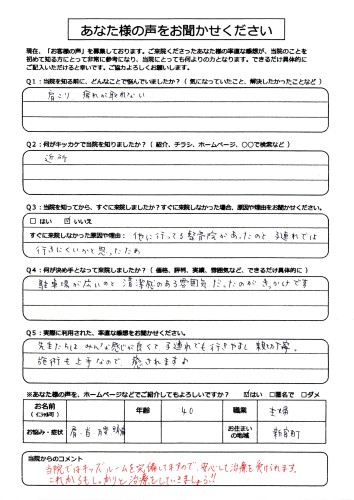 あなた様の声をお聞かせください
現在、「お客様の声」を募集しております。ご来院くださったあなた様の率直な感想が、当院のことを
初めて知る方にとって非常に参考になり、当院にとっても何よりの力となります。できるだけ具体的に
ご記入いただけると幸いです。ご協力よろしくお願いします。
Q1:当院を知る前に、どんなことで悩んでいましたか?(気になっていたこと、解決したかったことなど)
肩こり 疲れが取れない
Q2:何がキッカケで当院を知りましたか?(紹介、チラシ、ホームページ、○○で検索など)
近所
Q3:当院を知ってから、すぐに来院しましたか?すぐに来院しなかった場合、原因や理由をお聞かせください。
□ はい ☑ いいえ
すぐに来院しなかった原因や理由: 他に行ってる整骨院があったのと 子連れでは
行きにくいかと思ったため
Q4:何が決め手となって来院しましたか?(価格、評判、実績、雰囲気など、できるだけ具体的に)
駐車場が広いのと 清潔感のある雰囲気だったのがきっかけです
Q5:実際に利用された、率直な感想をお聞かせください。
先生たちは みんな感じが良くて 子連れでも行きやすし 親切丁寧。
施術も上手なので 癒されます♪
※あなた様の声を、ホームページなどでご紹介してもよろしいですか? ☑はい □匿名で □ダメ
お名前
(イニシャル可)
年齢 40 職業 主婦
お悩み・症状 肩・首・
お住まい
の地域
新宮町
当院からのコメント
当院ではキッズルームを完備してますので、安心して治療を受けられます。
これからもしっかりと治療をしていきましょう!!